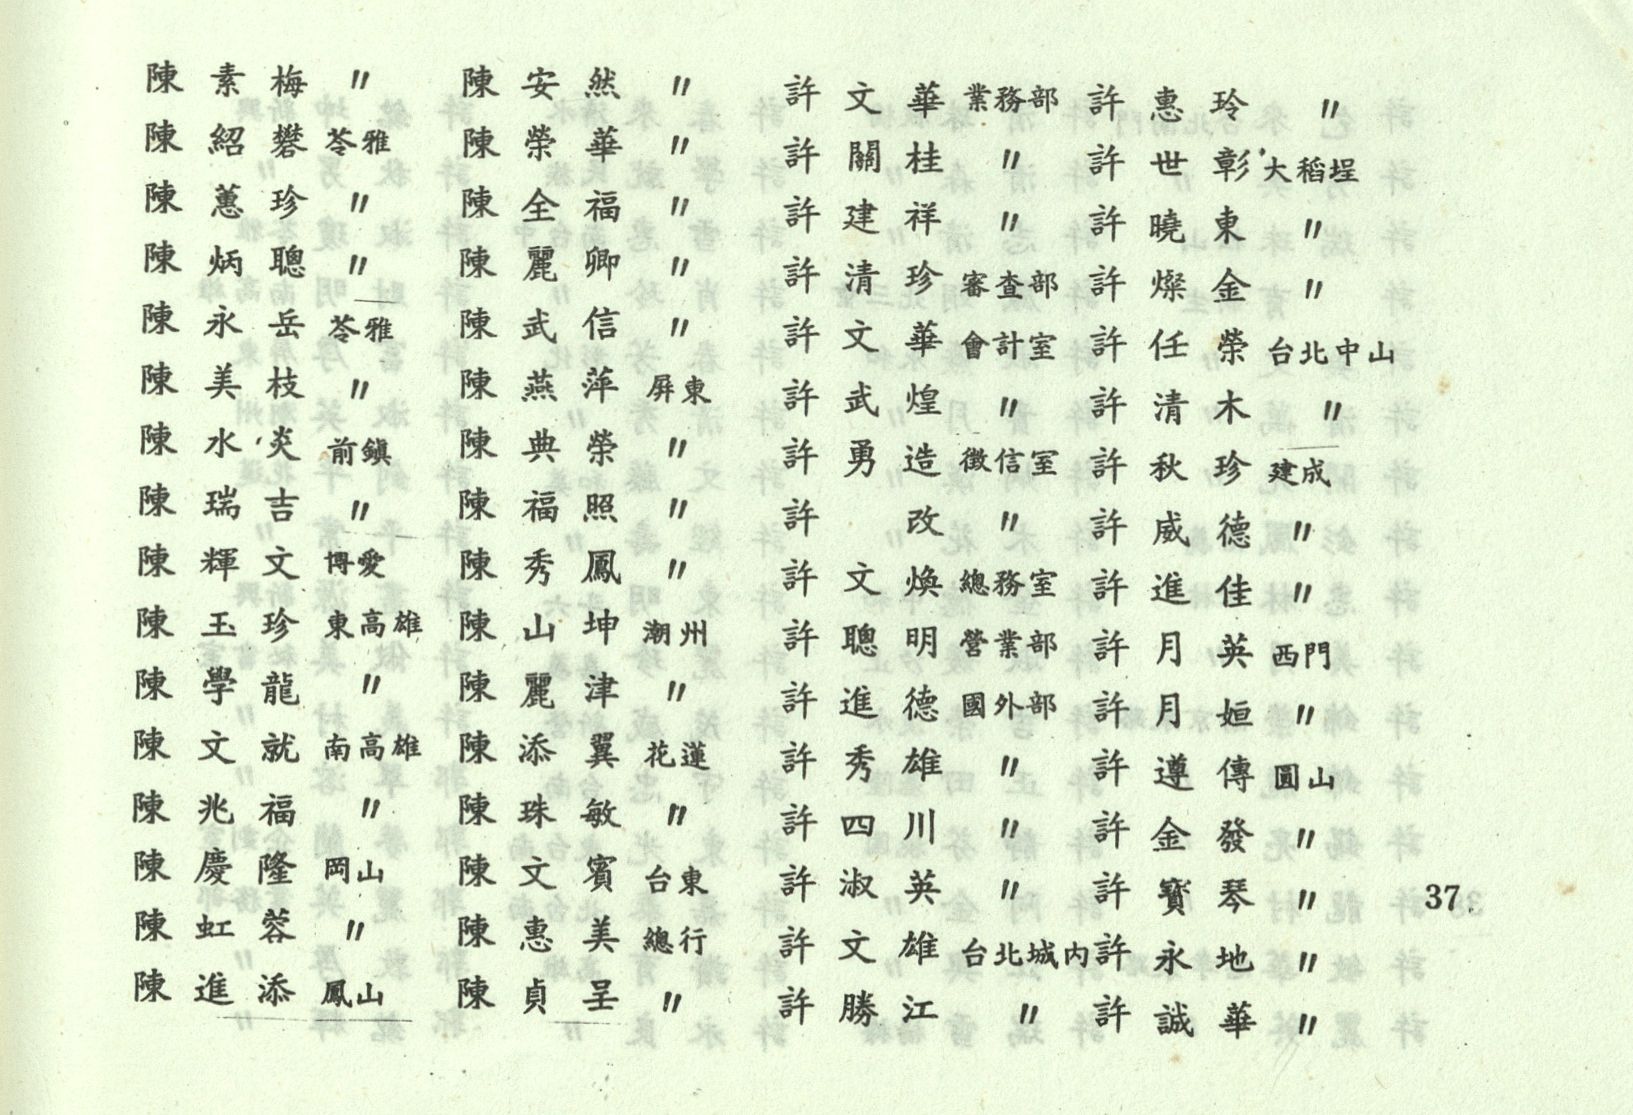 陳素梅 〃
陳紹礬 苓雅
陳蕙珍 〃
陳炳聰 〃
陳永岳 苓雅
陳美枝 〃
陳水炎 前鎮
陳瑞吉 〃
陳輝文 博愛
陳玉珍 東高雄
陳學龍 〃
陳文就 南高雄
陳兆福 〃
陳慶隆 岡山
陳虹蓉 〃
陳進添 鳳山
陳安然 〃
陳榮華 〃
陳全福 〃
陳麗卿 〃
陳武信 〃
陳燕萍 屏東
陳典榮 〃
陳福照 〃
陳秀鳳 〃
陳山坤 潮州
陳麗津 〃
陳添翼 花蓮
陳珠敏 〃
陳文賓 台東
陳惠美 總行
陳貞呈 〃
許文華 業務部
許關桂 〃
許建祥 〃
許清珍 審查部
許文華 會計室
許武煌 〃
許勇造 徵信室
許改 〃
許文煥 總務室
許聰明 營業部
許進德 國外部
許秀雄 〃
許四川 〃
許淑英 〃
許文雄 台北城內
許勝江 〃
許惠玲 〃
許世彰 大稻埕
許曉東 〃
許燦金 〃
許任榮 台北中山
許清木 〃
許秋珍 建成
許威德 〃
許進佳 〃
許月英 西門
許月姮 〃
許遵傳 圓山
許金發 〃
許寶琴 〃
許永地 〃
許誠華 〃
37